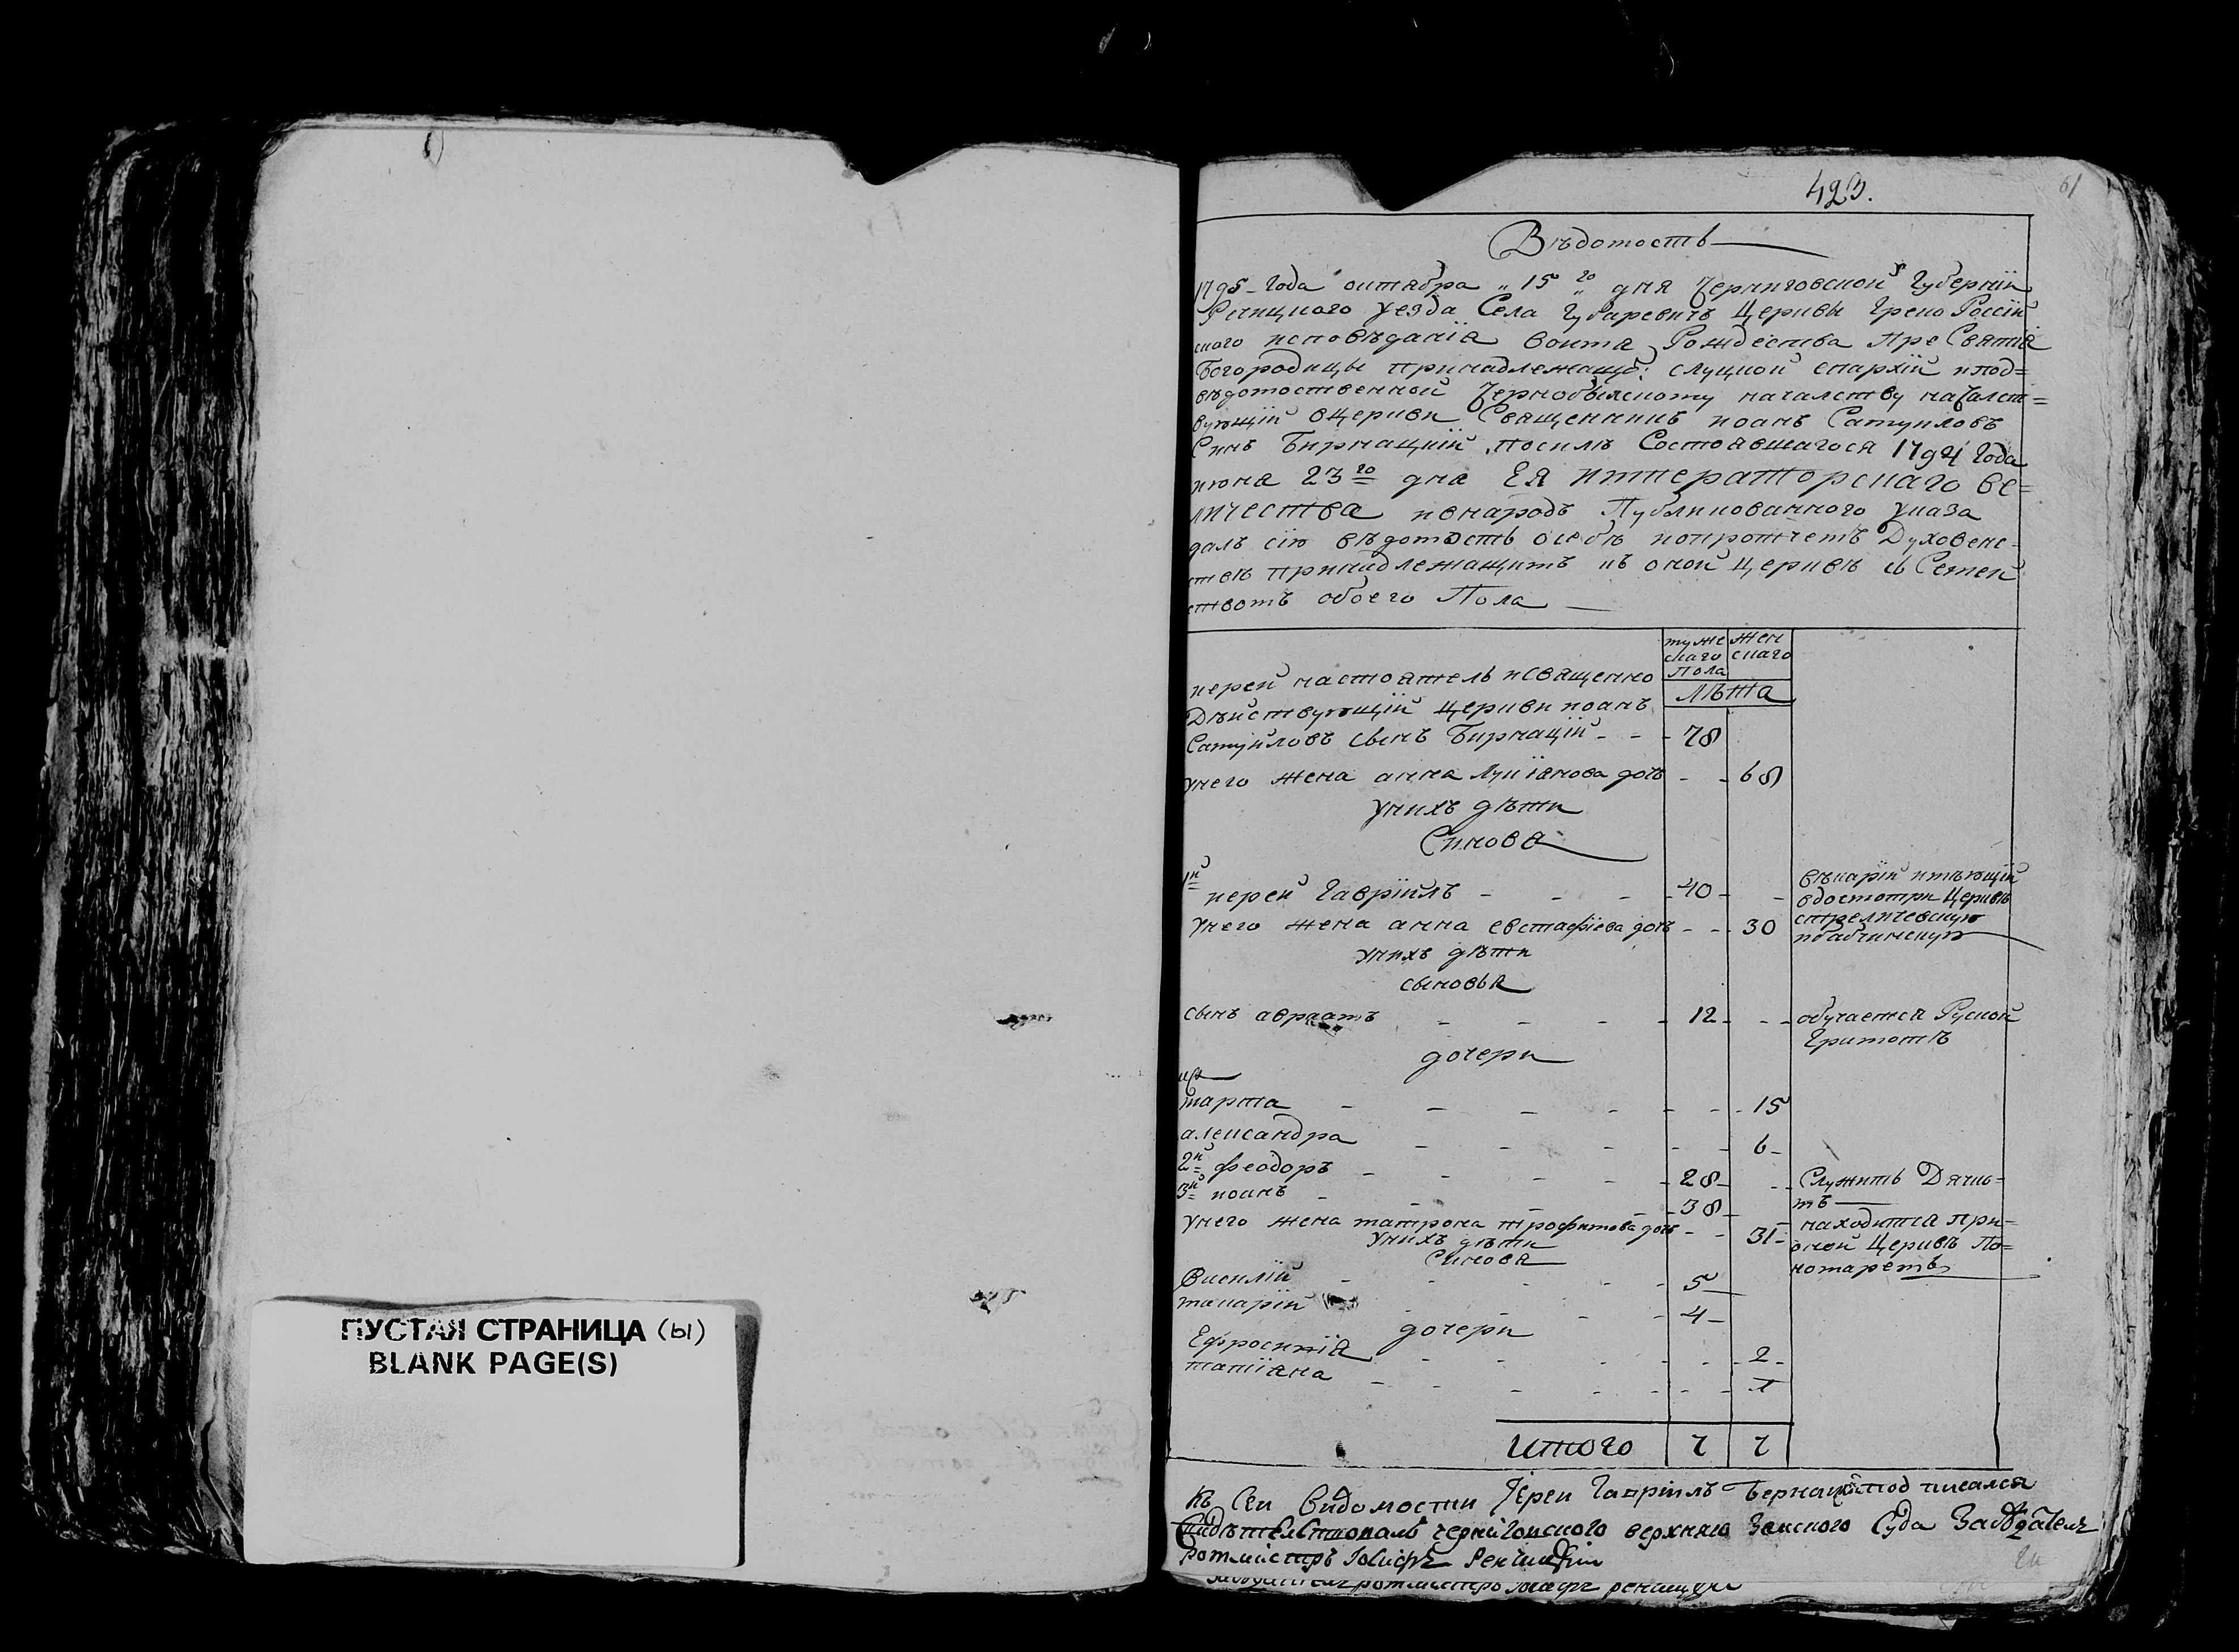 423.
61
Вѣдомость
1795 года октабра „ 15 го „ дня Черниговской Губернїи
Речицкого уезда Села Губаревичъ Церкви Греко Россїй
ского исповѣданїя воимя Рождества Пре Святїя
Богородицы принадлежащой: слуцкой епархїй ипод=
вѣдомственной Чернобылскому началству началст=
вующїй вЦеркви Священникъ иоанъ Самуиловъ
Синъ Бирнацкїй .посилѣ Состоявшагося 1794 года
июня 23 го дня Ея императорскаго ве=
личества ивнародъ Публикованного указа
далъ сїю вѣдомость осебѣ ипротчемъ Духовенс=
твѣ принадлежащимъ къ оной церквѣ и Семей
ствомъ обоего Пола
муже скаго Пола
жен скаго
лѣта
иерей настоятель исвященно
Дѣйствующїй церкви иоанъ
Самуйловъ сынъ Бирнацїй - - - 78
унего жена анна лукїянова дочь - - 68
унихъ дѣти
Синовя
1й иерей Гаврїилъ - - - 40 - -
викарїй имѣющїй
вдосмотри Церквѣ
стреличевскую
ибабчинскую
унего жена анна евстафїева дочь - - 30
унихъ дѣти
сыновья
сынъ авраамъ - - - - 12 - -
обучаемся Руской
Грамотѣ
дочери
марта - - - - - - - 15
александра - - - - - 6 -
2й феодоръ - - - - - 28 - - -
Служитъ Дячко=
мъ
3й иоанъ - - - - 38 -
унего жена матрона трофимова дочь - - 31 -
находится при=
оной Церквѣ По=
номаремъ
унихъ дѣти
Синовя
Василїй - - - - 5
макарїй - - - - 4 -
дочери
Ефросинїя - - - - - - 2 -
татїяна - - - - - - - 1
итого 7 7
Къ Сеи Видомости Іереи Гаврїилъ Бернацкїй подписался
Свидѣтелствовалъ черниговского верхняго Земского Суда Засѣдатель
ротмистръ Іосифъ
ПУСТАЯ СТРАНИЦА (Ы)
BLANK PAGE(S)